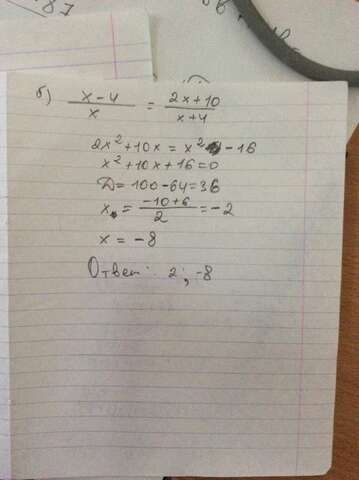 б) x-4/x = 2x+10/x+4
2x²+10x = x² -16
x²+10x+16=0
Д=100-64=36
x = -10+6/2 = -2
x = -8
Ответ: 2; -8